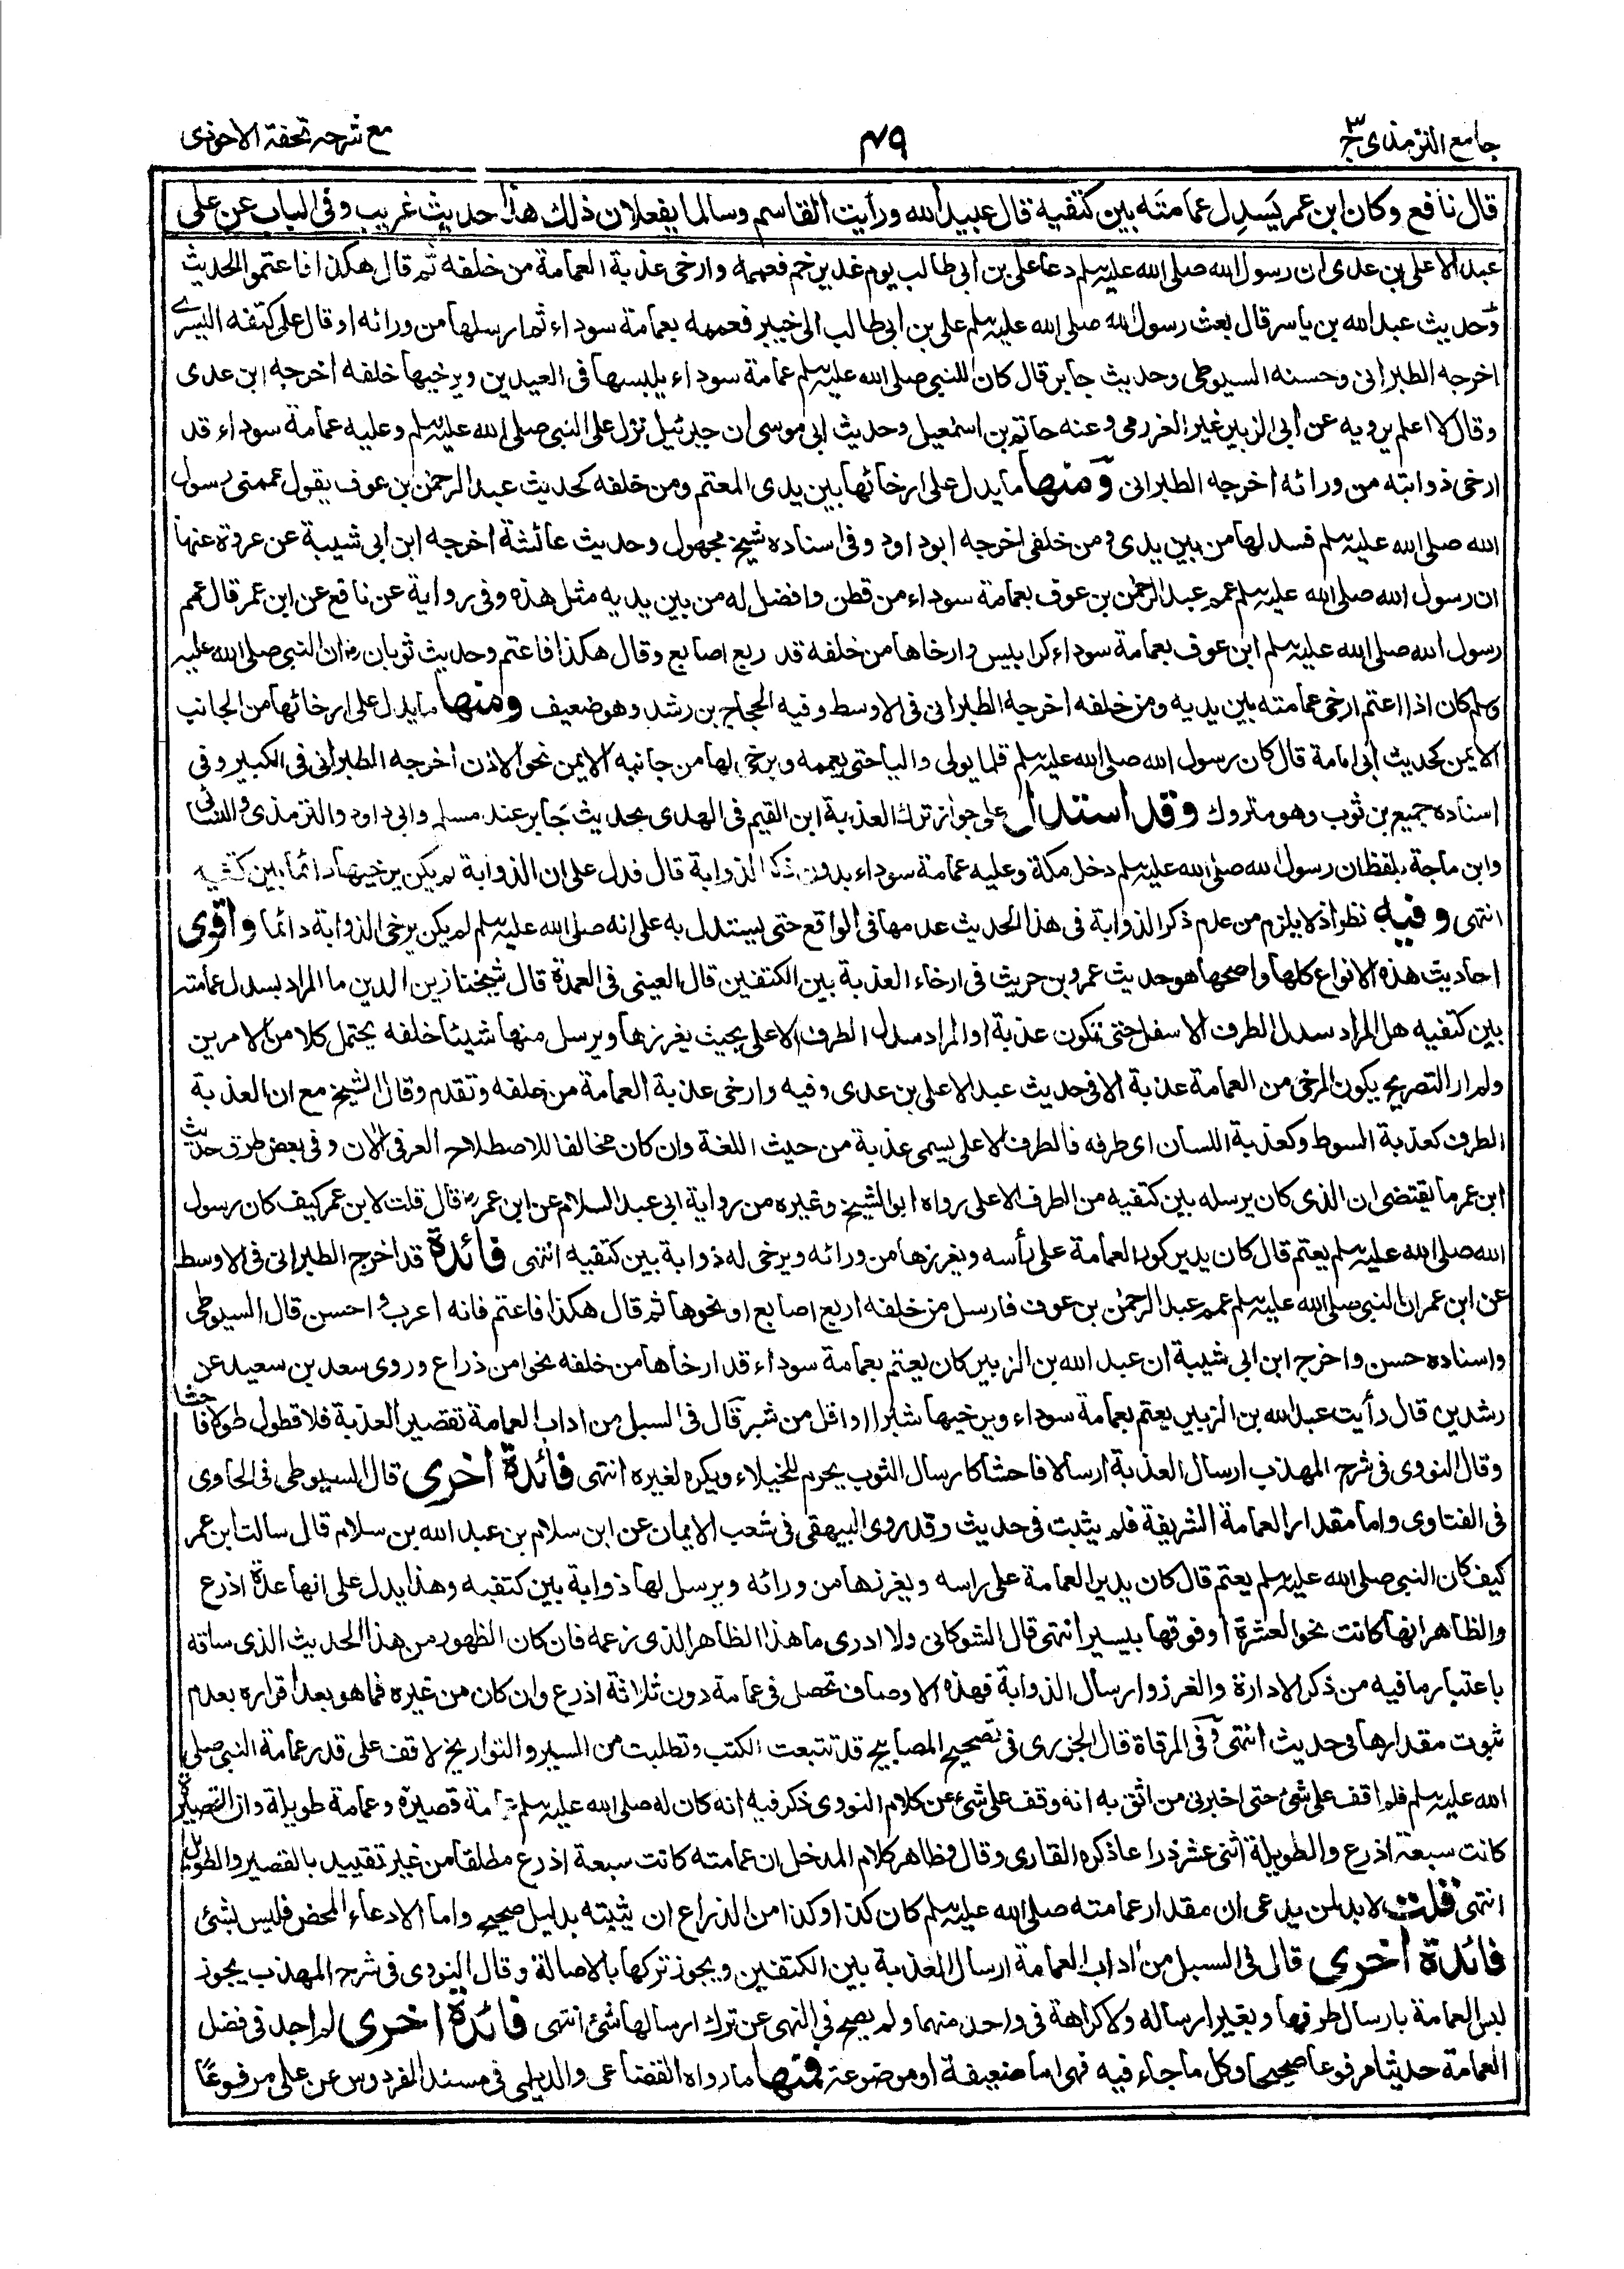 جامع الترمذی ج ٣
٤٩
مع شرحه تحفة الاحوذی
قال نافع وكان ابن عمر يَسدِل عمامتَه بين كتفيه قال عبيد الله ورأيت القاسم وسالما يفعلان ذلك هذا حديث غريب وفى الباب عن على
عبد الاعلى بن عدى ان رسول الله صلى الله عليه وسلم دعا على بن ابى طالب يوم غدير خم فعممه وارخى عذبة العمامة من خلفه ثم قال هكذا فاعتموا الحديث
وحديث عبد الله بن ياسر قال بعث رسول الله صلى الله عليه وسلم على بن ابى طالب الى خيبر فعممه بعمامة سوداء ثم ارسلها من ورائه او قال على كتفه اليسرے
اخرجه الطبرانى وحسنه السيوطى وحديث جابر قال كان للنبى صلى الله عليه وسلم عمامة سوداء يلبسها فى العيدين ويرخيها خلفه أخرجه ابن عدى
وقال لا اعلم يرويه عن أبى الزبير غير العرزمى وعنه حاتم بن اسمعيل وحديث ابى موسى ان جبرئيل نزل على النبى صلى الله عليه وسلم وعليه عمامة سوداء قد
ارخى ذوابته من ورائه أخرجه الطبرانى ومنها ما يدل على ارخائها بين يدى المعتم ومن خلفه كحديث عبد الرحمن بن عوف يقول عممنى رسول
الله صلى الله عليه وسلم فسدلها من بين يدى ومن خلفى اخرجه ابو داود وفى اسناده شيخ مجهول وحديث عائشة اخرجه ابن ابى شيبة عن عروة عنها
ان رسول الله صلى الله عليه وسلم عمم عبد الرحمن بن عوف بعمامة سوداء من قطن وافضل له من بين يديه مثل هذه وفى رواية عن نافع عن ابن عمر قال عمم
رسول الله صلى الله عليه وسلم ابن عوف بعمامة سوداء كرابيس وارخاها من خلفه قدر اربع اصابع وقال هكذا فاعتم وحديث ثوبان رض ان النبى صلى الله عليه
وسلم كان اذا اعتم ارخى عمامته بين يديه ومن خلفه اخرجه الطبرانى فى الاوسط وفيه الحجاج بن رشد وهو ضعيف ومنها ما يدل على ارخائها من الجانب
الايمن كحديث أبى امامة قال كان رسول الله صلى الله عليه وسلم قلما يولى واليا حتى يعممه ويرخى لها من جانبه الايمن نحو الاذن أخرجه الطبرانى فى الكبير وفى
اسناده جميع بن ثوب وهو متروك وقد استدل على جواز ترك العذبة ابن القيم فى الهدى بحديث جابر عند مسلم وابى داود والترمذى والنسائى
وابن ماجة بلفظ ان رسول الله صلى الله عليه وسلم دخل مكة وعليه عمامة سوداء بدون ذكر الذوابة قال فدل على ان الذوابة لم يكن يرخيها دائما بين كتفيه
انتهى وفيه نظر اذ لا يلزم من عدم ذكر الذوابة فى هذا الحديث عدمها فى الواقع حتى يستدل به على انه صلى الله عليه وسلم لم يكن يرخى الذوابة دائما واقوى
احاديث هذه الانواع كلها واصحها هو حديث عمرو بن حريث فى ارخاء العذبة بين الكتفين قال العينى فى العمدة قال شيخنا زين الدين ما المراد بسدل عمامته
بين كتفيه هل المراد سدل الطرف الاسفل حتى تكون عذبة او المراد سدل الطرف الاعلى بحيث يغرزها ويرسل منها شيئا خلفه يحتمل كلا من الامرين
ولم ار التصريح بكون المرخى من العمامة عذبة الا فى حديث عبد الاعلى بن عدى وفيه وارخى عذبة العمامة من خلفه وتقدم وقال الشيخ مع ان العذبة
الطرف كعذبة السوط وكعذبة اللسان اى طرفه فالطرف الاعلى يسمى عذبة من حيث اللغة وان كان مخالفا للاصطلاح العرفى الآن وفى بعض طرق حديث
ابن عمر ما يقتضى ان الذى كان يرسله بين كتفيه من الطرف الاعلى رواه ابو الشيخ وغيره من رواية ابى عبد السلام عن ابن عمر رض قال قلت لابن عمر كيف كان رسول
الله صلى الله عليه وسلم يعتم قال كان يدير كور العمامة على رأسه ويغرزها من ورائه ويرخى له ذوابة بين كتفيه انتهى فائدة قد اخرج الطبرانى فى الاوسط
عن ابن عمر ان النبى صلى الله عليه وسلم عمم عبد الرحمن بن عوف فارسل من خلفه اربع اصابع او نحوها ثم قال هكذا فاعتم فانه اعرب واحسن قال السيوطى
واسناده حسن واخرج ابن ابى شيبة ان عبد الله بن الزبير كان يعتم بعمامة سوداء قد ارخاها من خلفه نحوا من ذراع وروى سعد بن سعيد عن
رشدين قال رأيت عبد الله بن الزبير يعتم بعمامة سوداء ويرخيها شبرا او اقل من شبر قال فى السبل من اداب العمامة تقصير العذبة فلا تطول طولا فاحشا
وقال النووى فى شرح المهذب ارسال العذبة ارسالا فاحشا كارسال الثوب يحرم للخيلاء ويكره لغيره انتهى فائدة أخرى قال السيوطى فى الحاوى
فى الفتاوى واما مقدار العمامة الشريفة فلم يثبت فى حديث وقد روى البيهقى فى شعب الايمان عن ابن سلام بن عبد الله بن سلام قال سالت ابن عمر
كيف كان النبى صلى الله عليه وسلم يعتم قال كان يدير العمامة على راسه ويغرزها من ورائه ويرسل لها ذوابة بين كتفيه وهذا يدل على انها عدة اذرع
والظاهر انها كانت نحو العشرة او فوقها بيسير انتهى قال الشوكانى ولا ادرى ما هذا الظاهر الذى زعمه فان كان الظهور من هذا الحديث الذى ساقه
باعتبار ما فيه من ذكر الادارة والغرز وارسال الذوابة فهذه الاوصاف تحصل فى عمامة دون ثلاثة اذرع وان كان من غيره فما هو بعد اقراره بعدم
ثبوت مقدارها فى حديث انتهى وفى المرقاة قال الجزرى فى تصحيح المصابيح قد تتبعت الكتب وتطلبت من السير والتواريخ لاقف على قدر عمامة النبى صلى
الله عليه وسلم فلم اقف على شئ حتى اخبرنى من اثق به انه وقف على شئ من كلام النووى ذكر فيه انه كان له صلى الله عليه وسلم عمامة قصيرة وعمامة طويلة وان القصيرة
كانت سبعة اذرع والطويلة اثنى عشر ذراعا ذكره القارى وقال وظاهر كلام المدخل ان عمامته كانت سبعة اذرع مطلقا من غير تقييد بالقصير والطويل
انتهى قلت لا بد لمن يدعى ان مقدار عمامته صلى الله عليه وسلم كان كذا وكذا من الذراع ان يثبته بدليل صحيح واما الادعاء المحض فليس بشئ
فائدة أخرى قال فى السبل من اداب العمامة ارسال العذبة بين الكتفين ويجوز تركها بالاصالة وقال النووى فى شرح المهذب يجوز
لبس العمامة بارسال طرفها وبغير ارساله ولا كراهة فى واحد منهما ولم يصح فى النهى عن ترك ارسالها شئ انتهى فائدة اخرى لم اجد فى فضل
العمامة حديثا مرفوعا صحيحا وكل ما جاء فيه فهى اما ضعيفة او موضوعة فمنها ما رواه القضاعى والديلمى فى مسند الفردوس عن على مرفوعًا